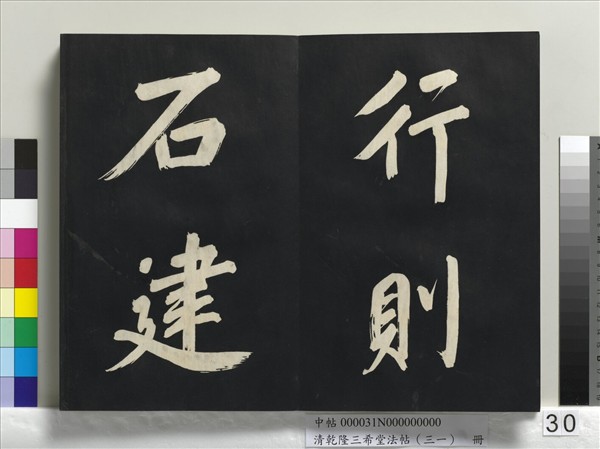 行則
石建
中帖 000031N000000000
清乾隆三希堂法帖(三一) 冊
30